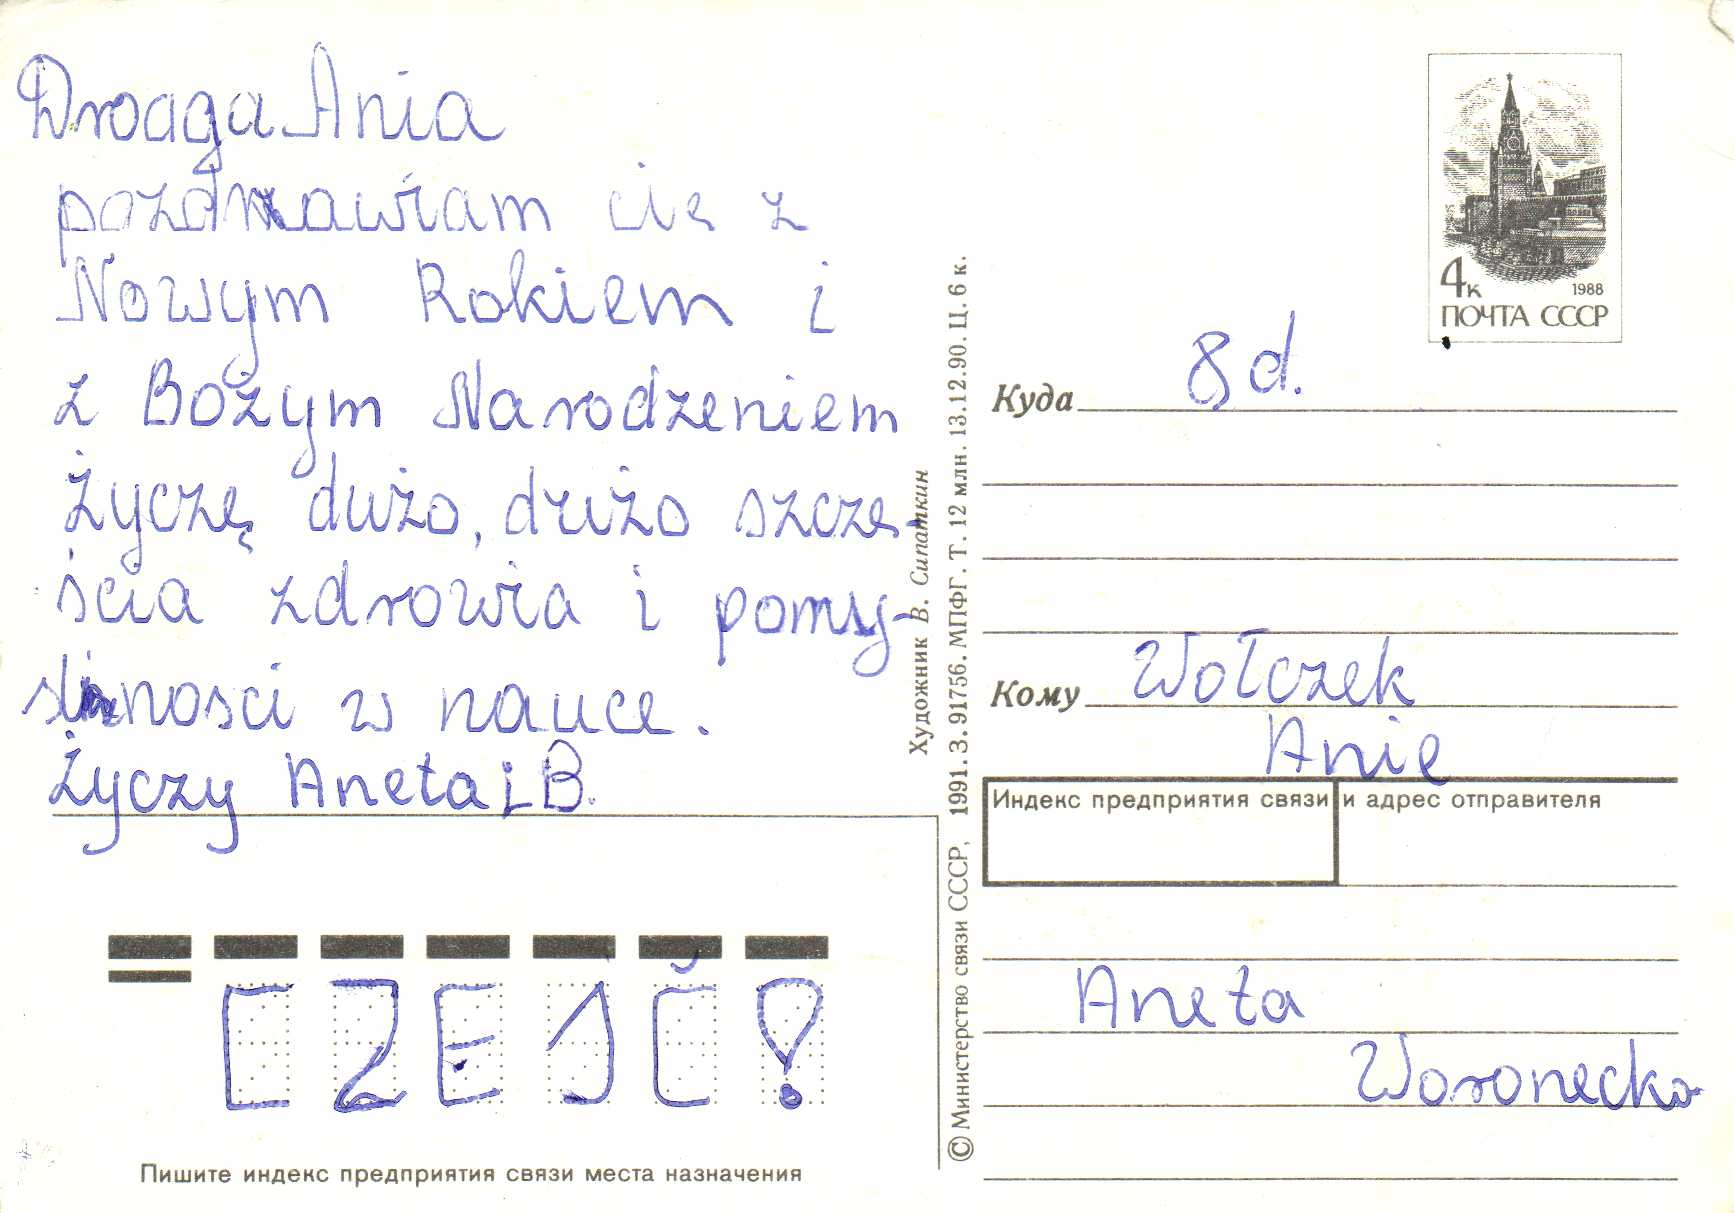 Droaga Ania
pozdrawiam cię z
Nowym Rokiem i
z Bożym Narodzeniem
Życzę dużo, dużo szczę-
ścia zdrowia i pomy-
slności w nauce.
Życzy Aneta i B.
CZEŚČ!
Пишите индекс предприятия связи места назначения
Художник В. Сипаткин
© Министерство связи СССР, 1991. З. 91756. МПФГ. Т. 12 млн. 13.12.90. Ц. 6 к.
4к 1988
ПОЧТА СССР
Куда 8 d.
Кому Wołczek
Anie
Индекс предприятия связи и адрес отправителя
Aneta
Woronecka